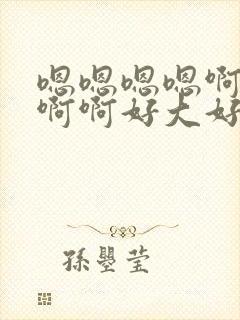 嗯嗯嗯嗯啊
啊啊好大好
孫曌莹